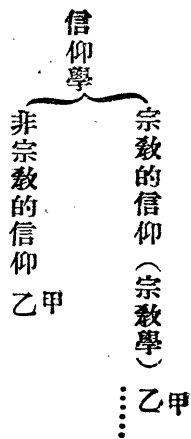 信仰學
宗教的信仰（宗教學）甲
乙……
非宗教的信仰甲
乙